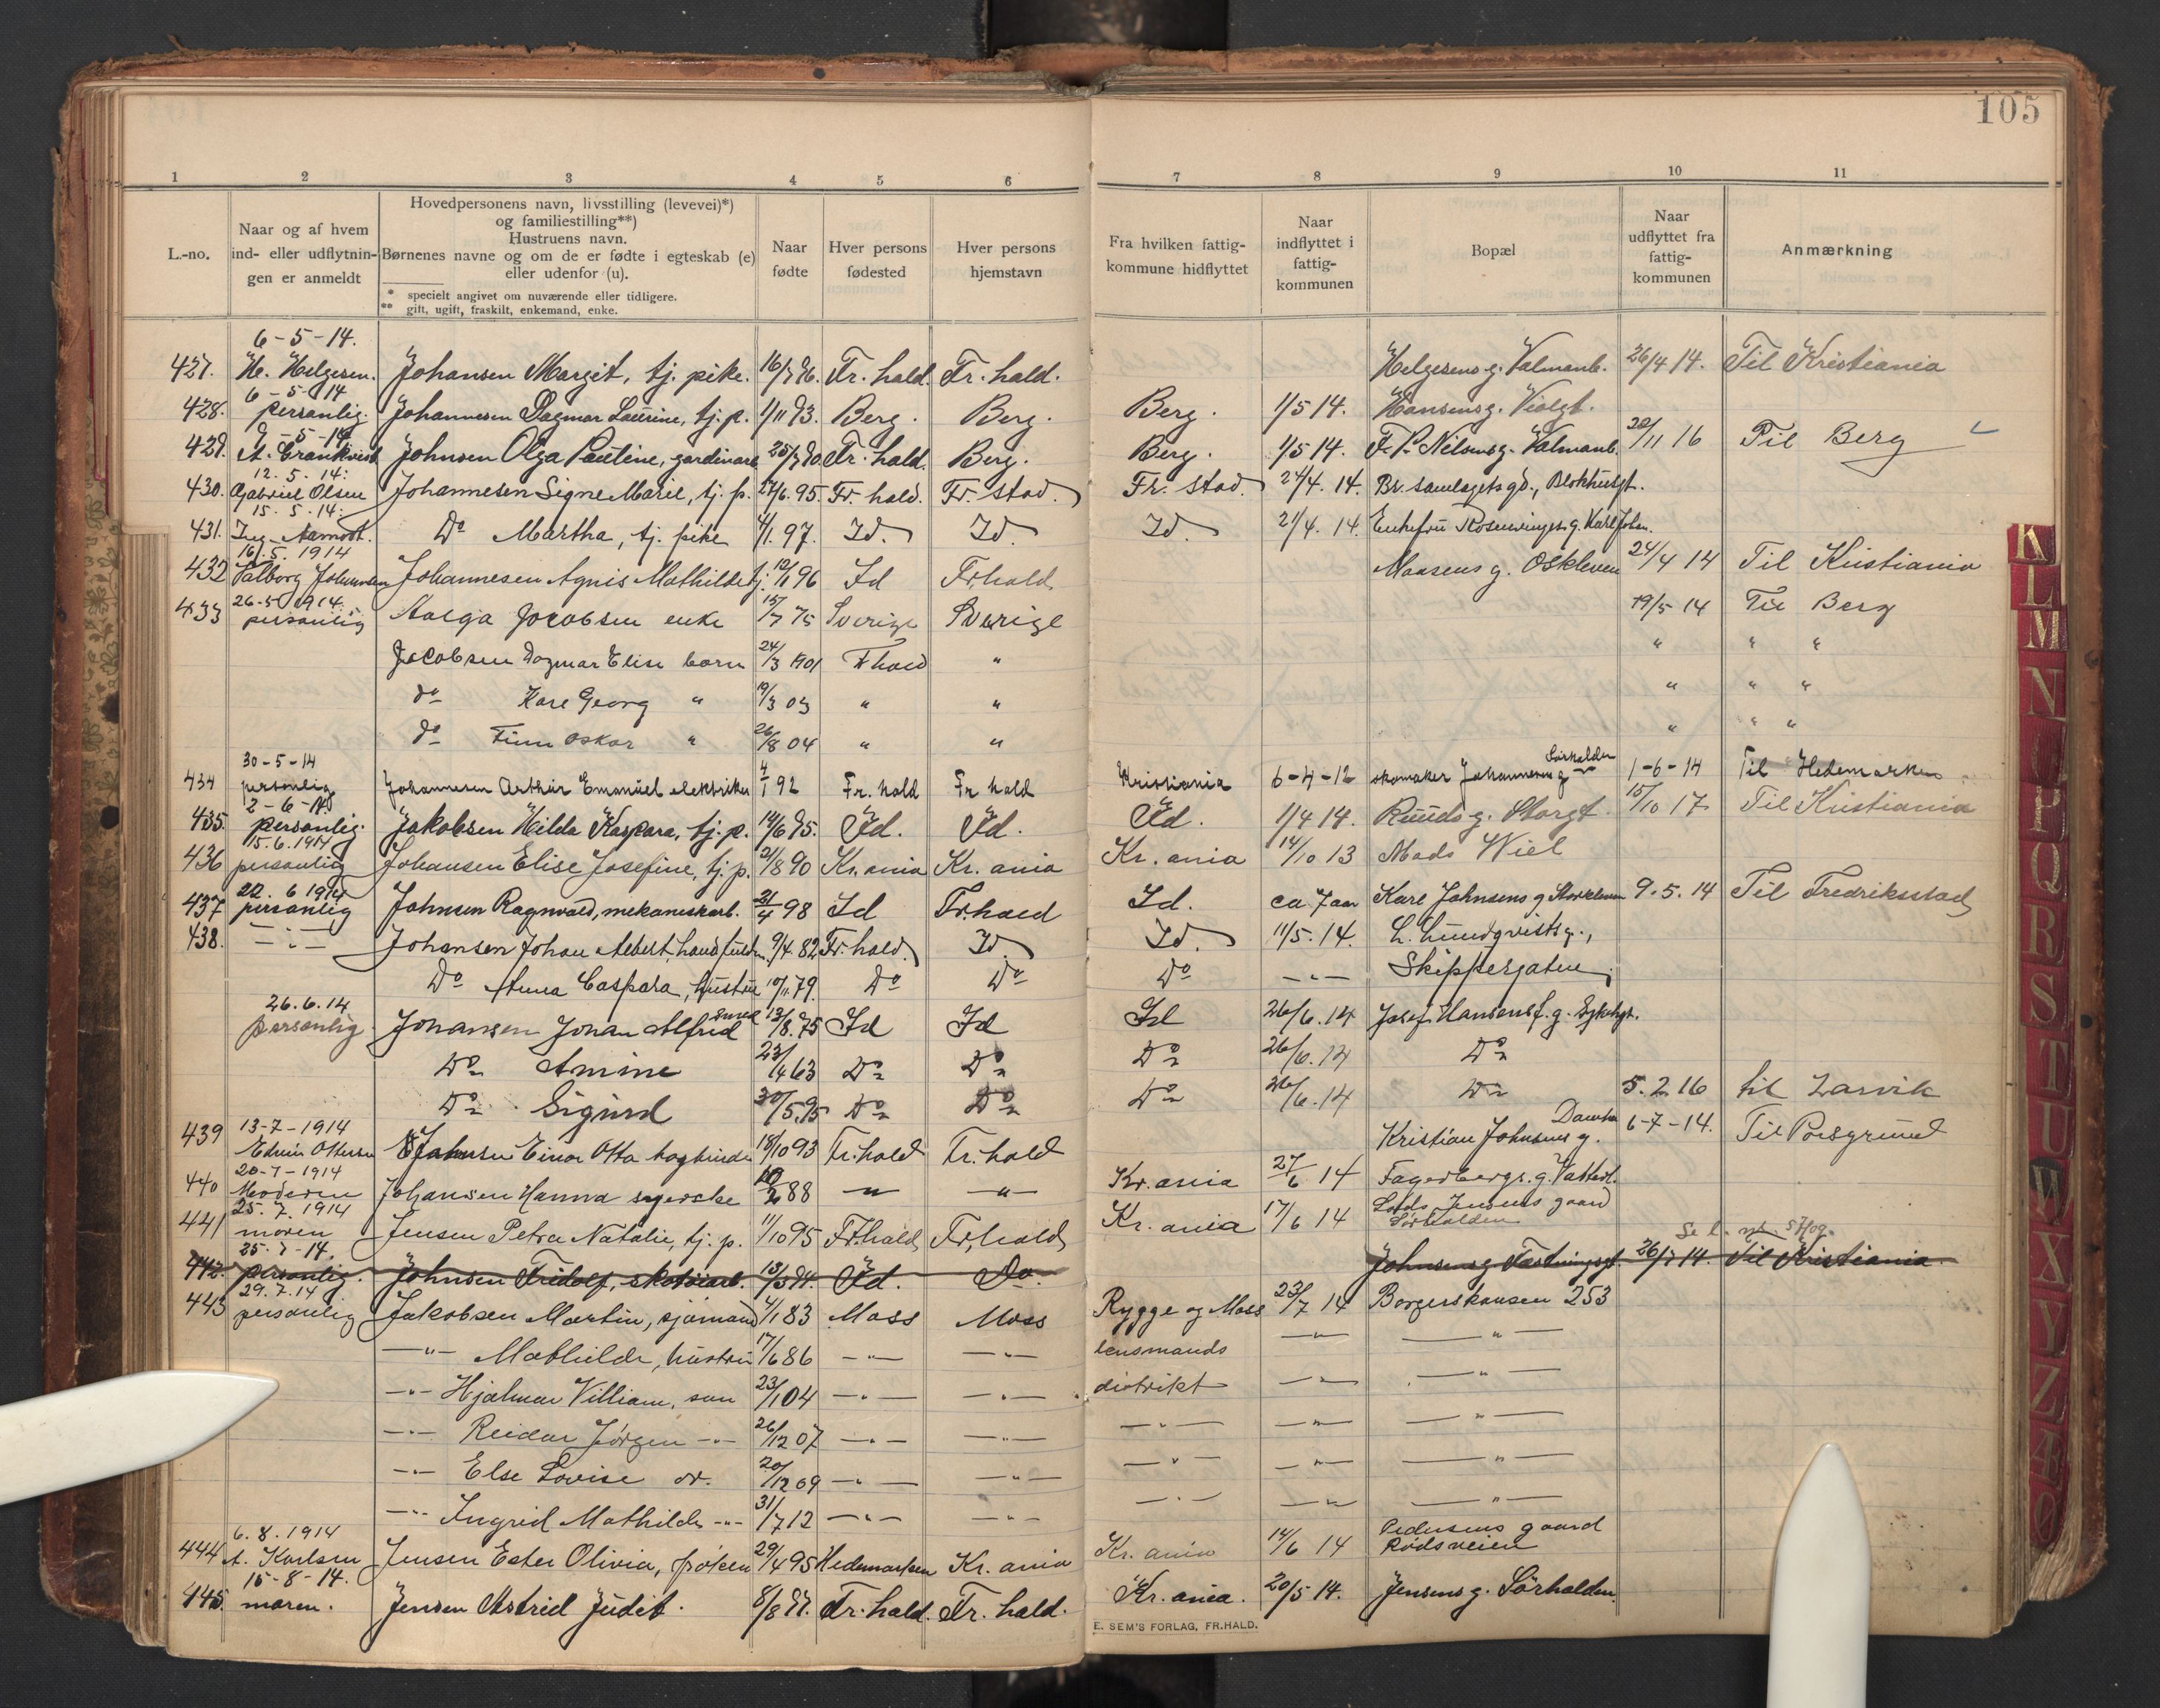 105
1 2 3 4 5 6 7 8 9 10 11
L.-no.
Naar og af hvem
ind- eller udflytnin-
gen er anmeldt
Hovedpersonens navn, livsstilling (levevei)*)
og familiestilling**)
Hustruens navn.
Børnenes navne og om de er fødte i egteskab (e)
eller udenfor (u).
* specielt angivet om nuværende eller tidligere.
** gift, ugift, fraskilt, enkemand, enke.
Naar
fødte
Hver persons
fødested
Hver persons
hjemstavn
Fra hvilken fattig-
kommune hidflyttet
Naar
indflyttet i
fattig-
kommunen
Bopæl
Naar
udflyttet fra
fattig-
kommunen
Anmærkning
6-5-14.
427. H. Helgesen. Johansen Margit, tj. pike. 16/7 96. Fr. hald. Fr. hald. Helgesens g. Valmanb. 26/4 14. Til Kristiania
6-5-14
428. personlig. Johannesen Dagmar Laurine, tj. p. 1/11 93. Berg. Berg. Berg. 1/5 14. Hansens g. Violgt.
7-5-14
429. Johnsen Olga Pauline, gardinarb. 25/7 90 Fr. hald. Berg. Berg. 1/5 14. F. P. Nilsens g. Valmanb. 20/11 16 Til Berg
12.5.14.
430. Gabriel Olsen Johannesen Signe Marie, tj. p. 27/6. 95. Fr. hald. Fr. stad. Fr. stad. 24/4. 14. Br. samlagets gd., Blokhusgt.
15.5.14.
431. Ing. Aamodt. Do Martha, tj. pike 4/1. 97. Id. Id. Id. 21/4. 14. Enkefru Rosenvinges g. Karl Johan.
16/.5. 1914
432 Valborg Johannesen Johannesen Agnis Mathilde tj. 12/1 96 Id Frhald Monsens g. Oskleven 24/4 14 Til Kristiania
26-5 1914.
433 personlig Aalga Jocobsen enke 15/7 75 Sverige Sverige 19/5 14 Til Berg
Jacobsen Dagmar Elise barn 24/3 1901 Fhald " " " "
do Kare Georg " 19/3 03 " " " " "
do Finn Oskar " 26/8 04 " " " " "
30-5-14
434 personlig Johannesen Arthur Emanuel elektriker 4/1 92 Fr. hald Fr hald Kristiania 6-4-12 skomaker Johannesens g Sørhalden 1-6-14 Til Hedemarken
2-6-14
435. personlig. Jakobsen Hilda Kaspara, tj. p. 14/6 95. Id. Id. Id. 1/4 14. Ruuds g. Storgt. 15/10 17 Til Kristiania
15.6.1914
436 personlig Johansen Elise Josefine, tj. p. 21/8 90 Kr. ania Kr. ania Kr. ania 14/10 13 Mads Wiel
22. 6 1914
437 personlig Johnsen Ragnvald, mekaniskarb. 21/4 98 Id Fr. hald Id. ca 7 aar Karl Johnsens g 9. 5. 14 Til Fredriksstad
438. —"— Johansen Johan Albert, 9/4. 82 Fr. hald. Id. Id. 11/5. 14. L. Lundqvists g.,
Do Anna Caspara, hustru 10/11. 79. Do Do Do —"— Skippergaten.
26.6.14
personlig Johansen Johan Alfred Smed 13/8. 75 Id Id Id 26/6. 14 Josef Hansens f. g. Sykehgt.
Do Amine 23/4 63 Do Do Do 26/6. 14 Do
Do Sigurd 30/5. 95 Do Do Do 26/6. 14 Do 5. 2 16 til Larvik
13-7-1914
439 Edvin Ottersen Johnsen Einar Otto bogbinder 18/10 93 Fr. hald Fr. hald Kristian Johnsens g. Damh 6-7-14. Til Porsgrund
20-7-1914
440 Moderen Johansen Hanna syerske 10/2 88 —"— —"— Kr. ania 27/6 14 Fagerbergs. g. Vaktert.
25. 7. 1914
441 moren Jensen Petra Natalie, tj. p. 11/10 95 Fr. hald Fr. hald Kr. ania 17/6 14 Lods Jensens gaard Sørhalden
25-7-14.
442. personlig. Johnsen Fridolf, skotøiarb. 13/3 94. Id. Do. Johnsens g Fæstningsgt. 26/7 14. Til Kristiania.
29. 7. 14
443 personlig Jakobsen Martin, sjømand 4/1 83 Moss Moss Rygge og Moss 23/7 14 Borgerskansen 253
—"— Mathilde, hustru 17/6 86 —"— —"— lensmands —"— —"—
—"— Hjalmar Villiam, søn 23/1 04 —"— —"— distrikt —"— —"—
—"— Reidar Jørgen —"— 26/12 07 —"— —"— —"— —"— —"—
—"— Else Lovise dr. 20/12 09 —"— —"— —"— —"— —"—
—"— Ingrid Mathilde —"— 31/7 12 —"— —"— —"— —"— —"—
6. 8. 1914
444 A. Karlsen Jensen Ester Olivia, frøken 29/4 95 Hedemarken Kr. ania Kr. ania 14/6 14 Pedersens gaard Rødsveien
15-8-14.
445. moren. Jensen Astrid Judit. 8/8 97. Fr. hald. Fr. hald. Kr. ania. 20/5 14. Jensens g. Sørhalden.
E. SEM'S FORLAG, FR.HALD.
K
L
M
N
P
Q
R
S
T
U
W
X
Y
Z
Æ
Ø